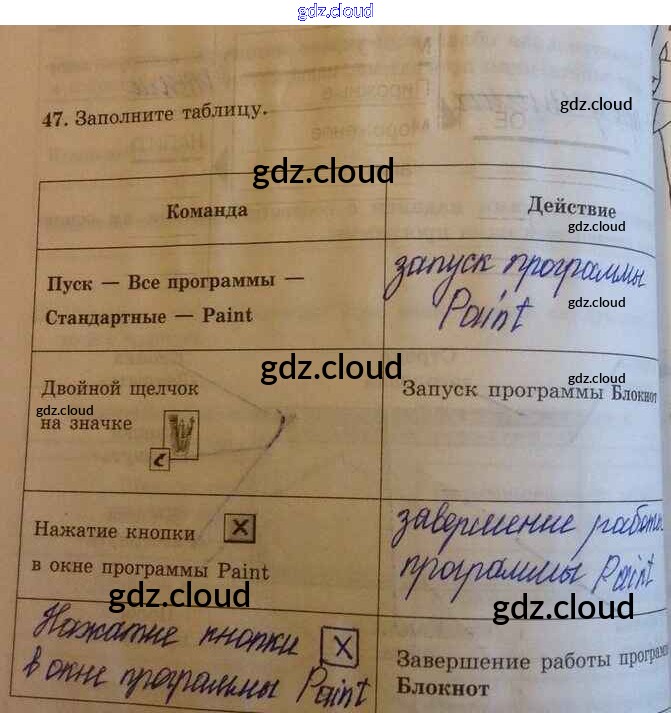 gdz.cloud
47. Заполните таблицу.
gdz.cloud
gdz.cloud
Команда
Действие
gdz.cloud
Пуск — Все программы —
Стандартные — Paint
запуск программы
Paint
gdz.cloud
gdz.cloud
Двойной щелчок
на значке
gdz.cloud
Запуск программы Блокнот
gdz.cloud
Нажатие кнопки X
в окне программы Paint
завершение работы
программы Paint
gdz.cloud
gdz.cloud
Нажатие кнопки X
в окне программы Paint
Завершение работы програм
Блокнот